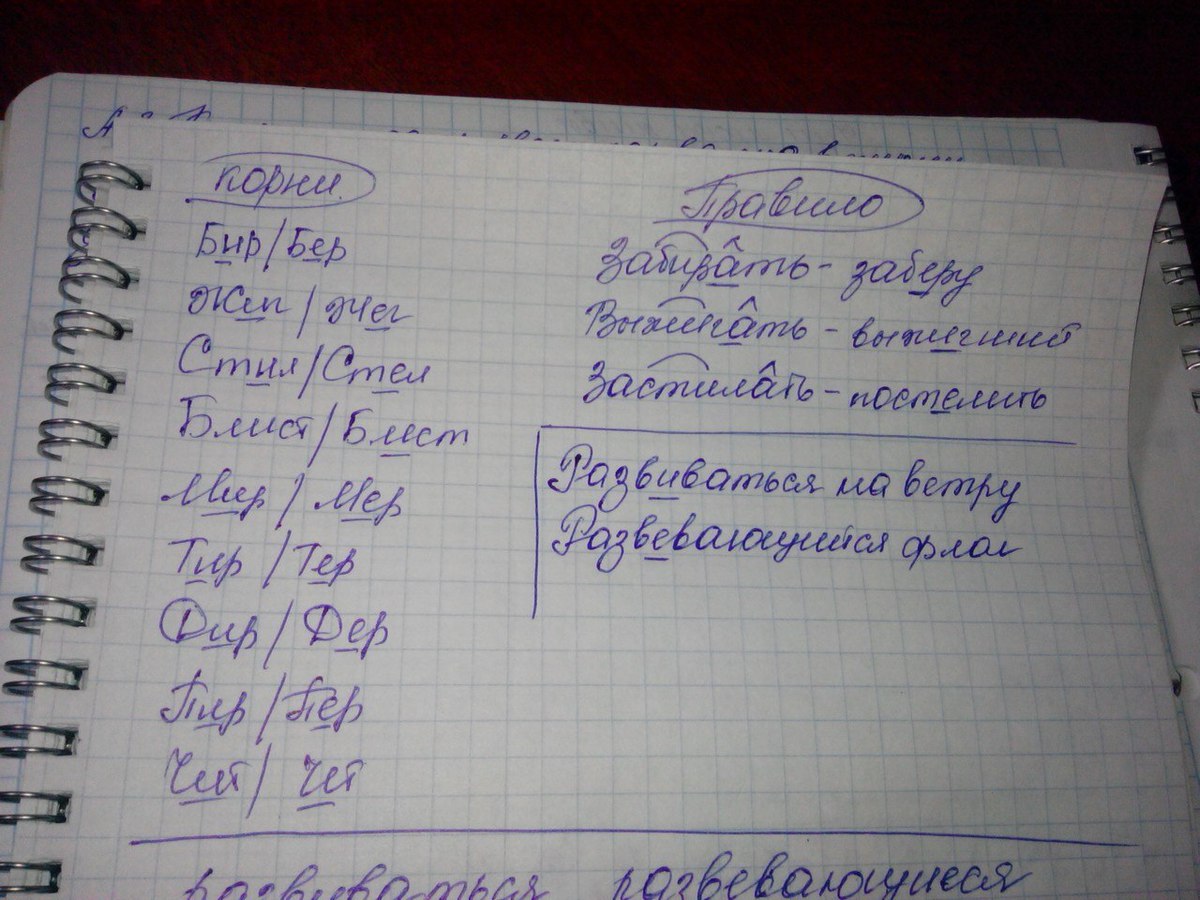 корни.
Бир/Бер
Жиг/Жег
Стил/Стел
Блист/Блест
Мир/Мер
Тир/Тер
Дир/Дер
Пир/Пер
Чит/Чет
Правило
Забирать - заберу
Выжигать - выжегший
Застилать - постелить
Развиваться на ветру
Развевающийся флаг
развиваться развевающиеся